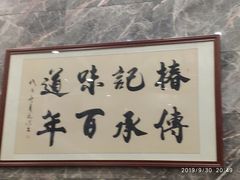 椿記味道
傳承百年
2019/9/30 20:49